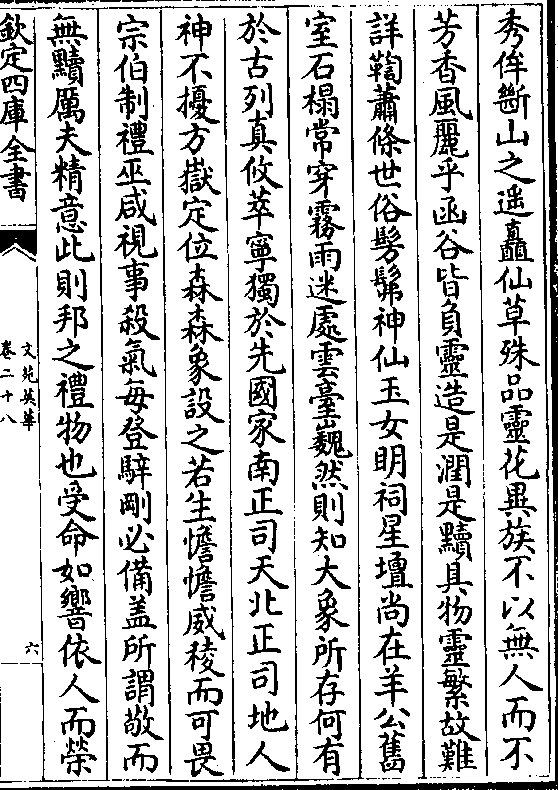 秀侔斷山之遥矗仙草殊品靈花異族不以無人而不
芳香風麗乎函谷皆負靈造是潤是黷具物靈繁故難
詳鞫蕭條世俗髣髴神仙玉女明祠星壇尚在羊公舊
室石榻常穿霧雨迷處雲臺巍然則知大象所存何有
於古列真攸萃寧獨於先國家南正司天北正司地人
神不擾方嶽定位森森象設之若生憺憺威稜而可畏
宗伯制禮巫咸視事殺氣每登騂剛必備盖所謂敬而
無黷厲夫精意此則邦之禮物也受命如響依人而榮
欽定四庫全書
文苑英華
卷二十八
六